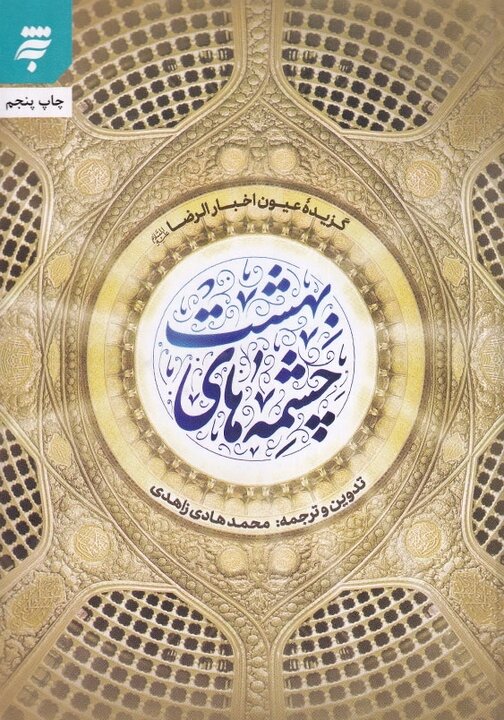 چاپ پنجم
گزیدهٔ عیون اخبار الرضا علیه‌السلام
چشمه‌های
بهشت
تدوین و ترجمه: محمدهادی زاهدی